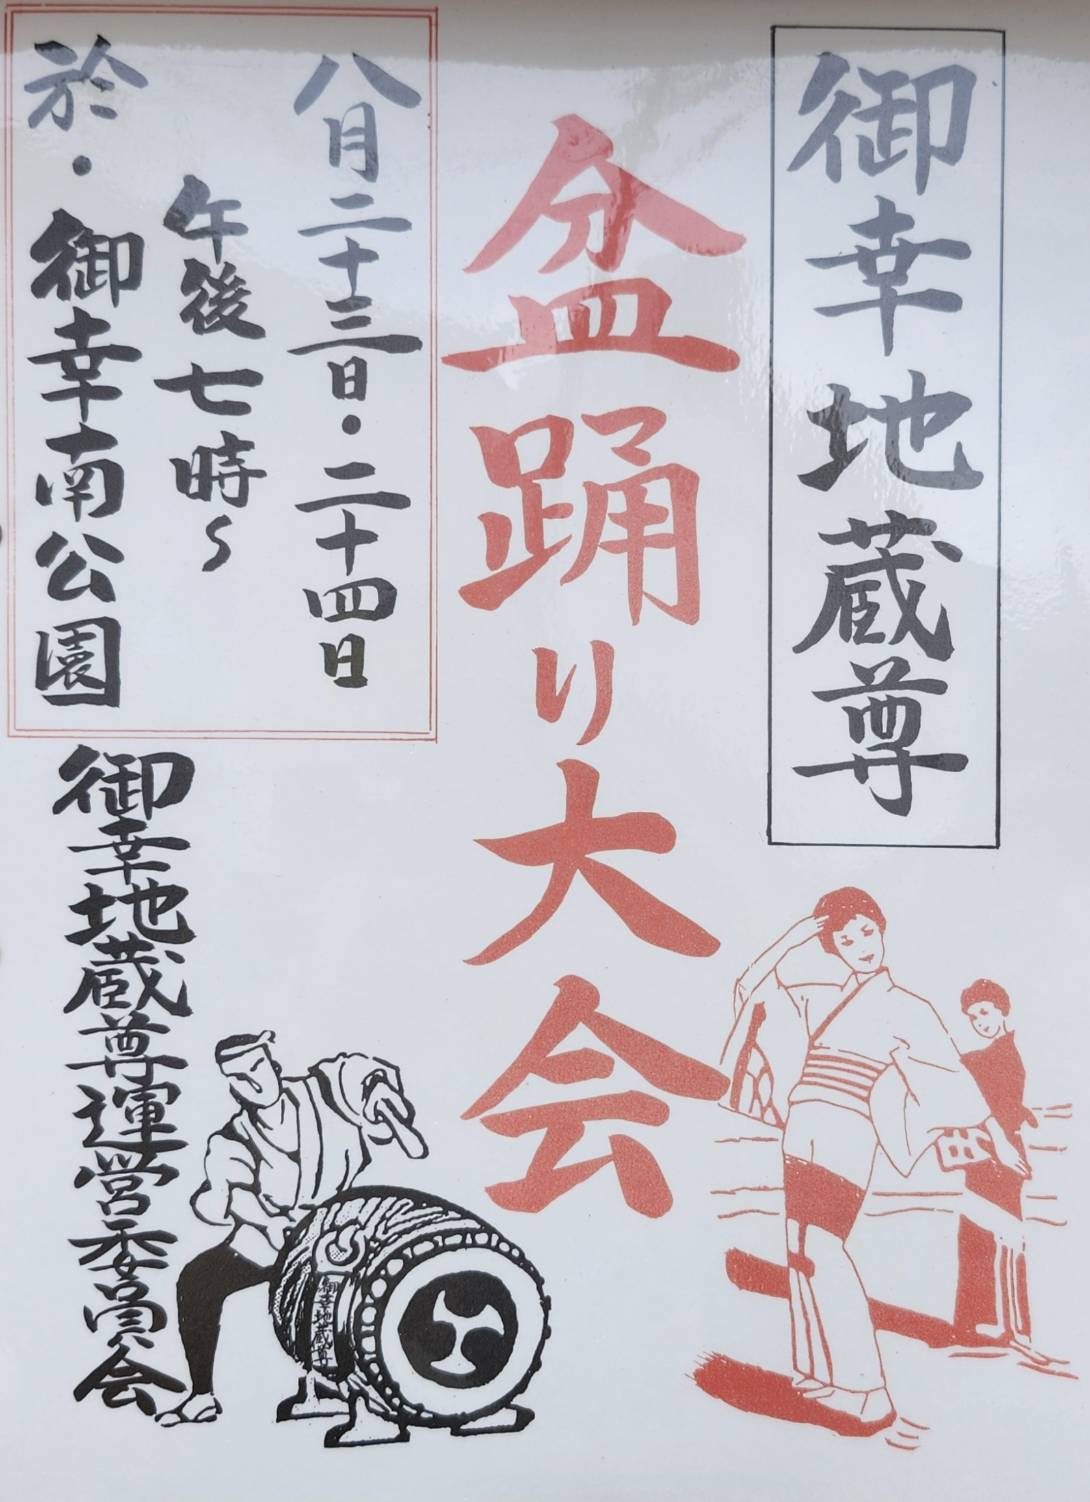 御幸地蔵尊
盆踊り大会
八月二十三日・二十四日
午後七時〜
於・御幸南公園
御幸地蔵尊運営委員会
御幸地蔵尊